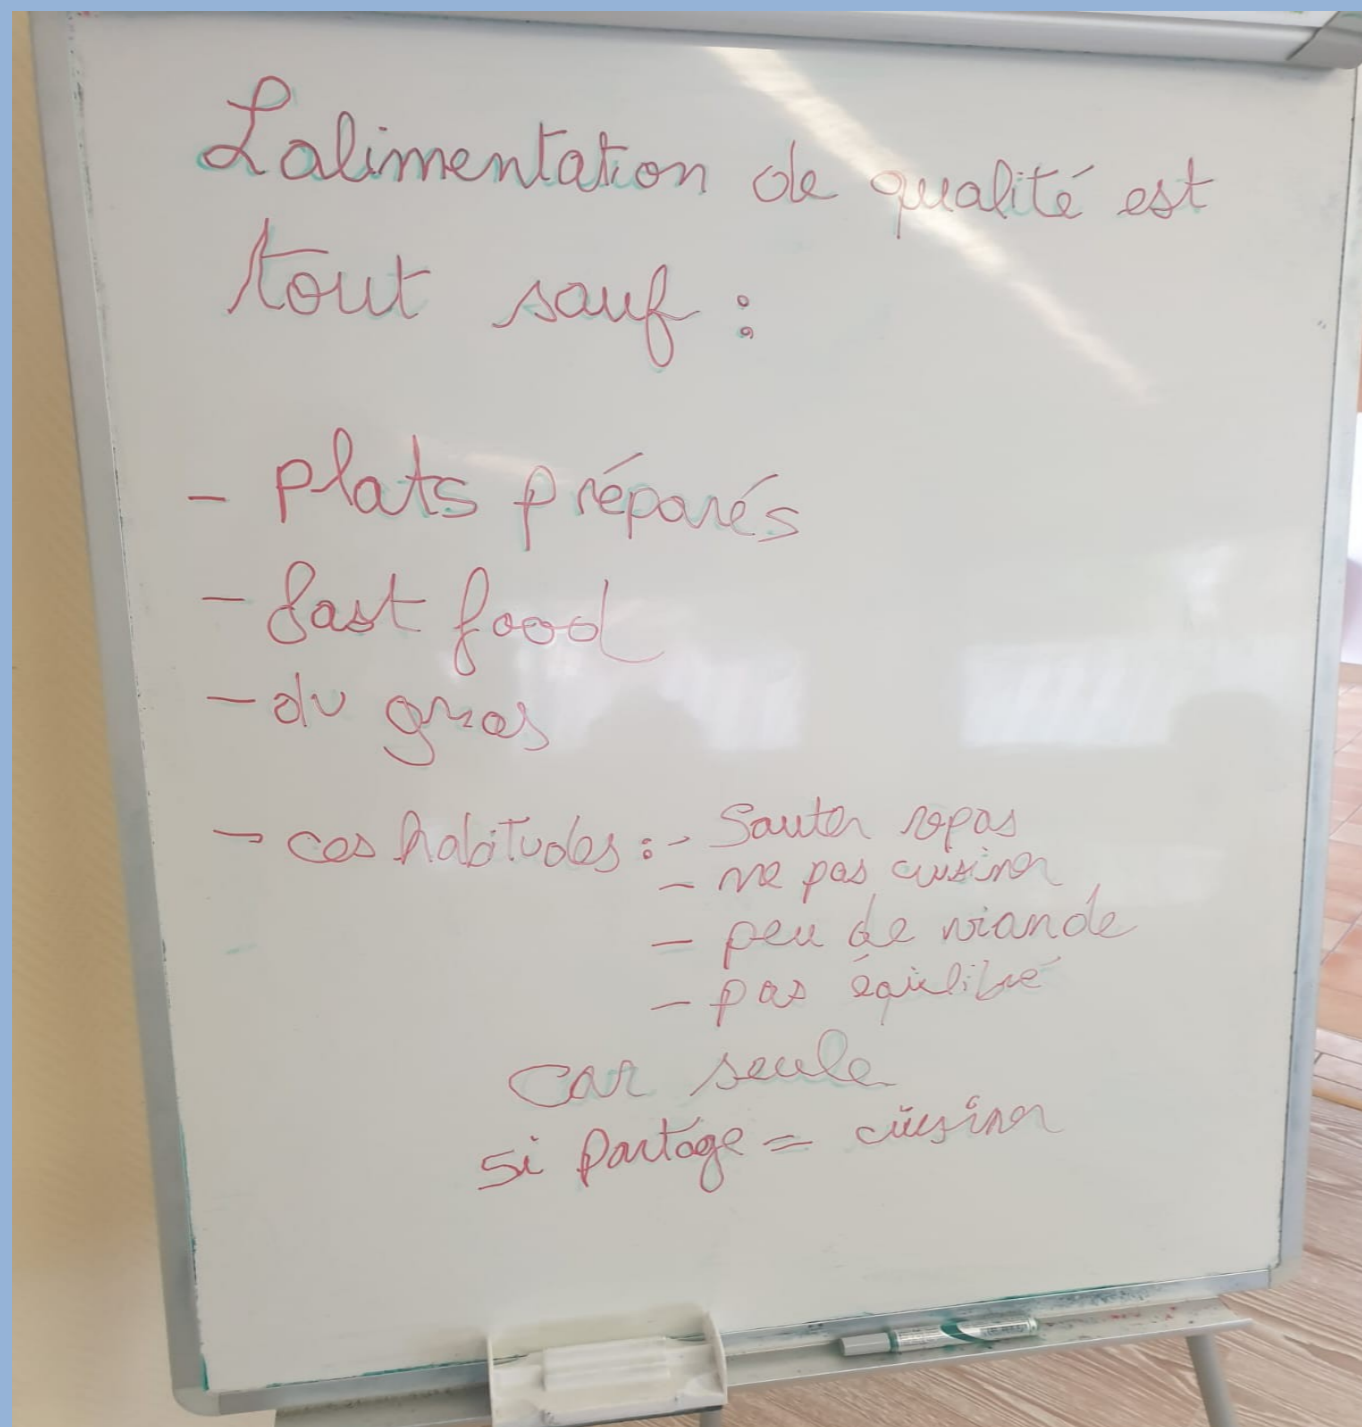 Lalimentation de qualité est
tout sauf :
- plats préparés
- fast food
- du gras
- ces habitudes : - Sauter repas
- ne pas cuisiner
- peu de viande
- pas équilibré
car seule
si partage = cuisiner